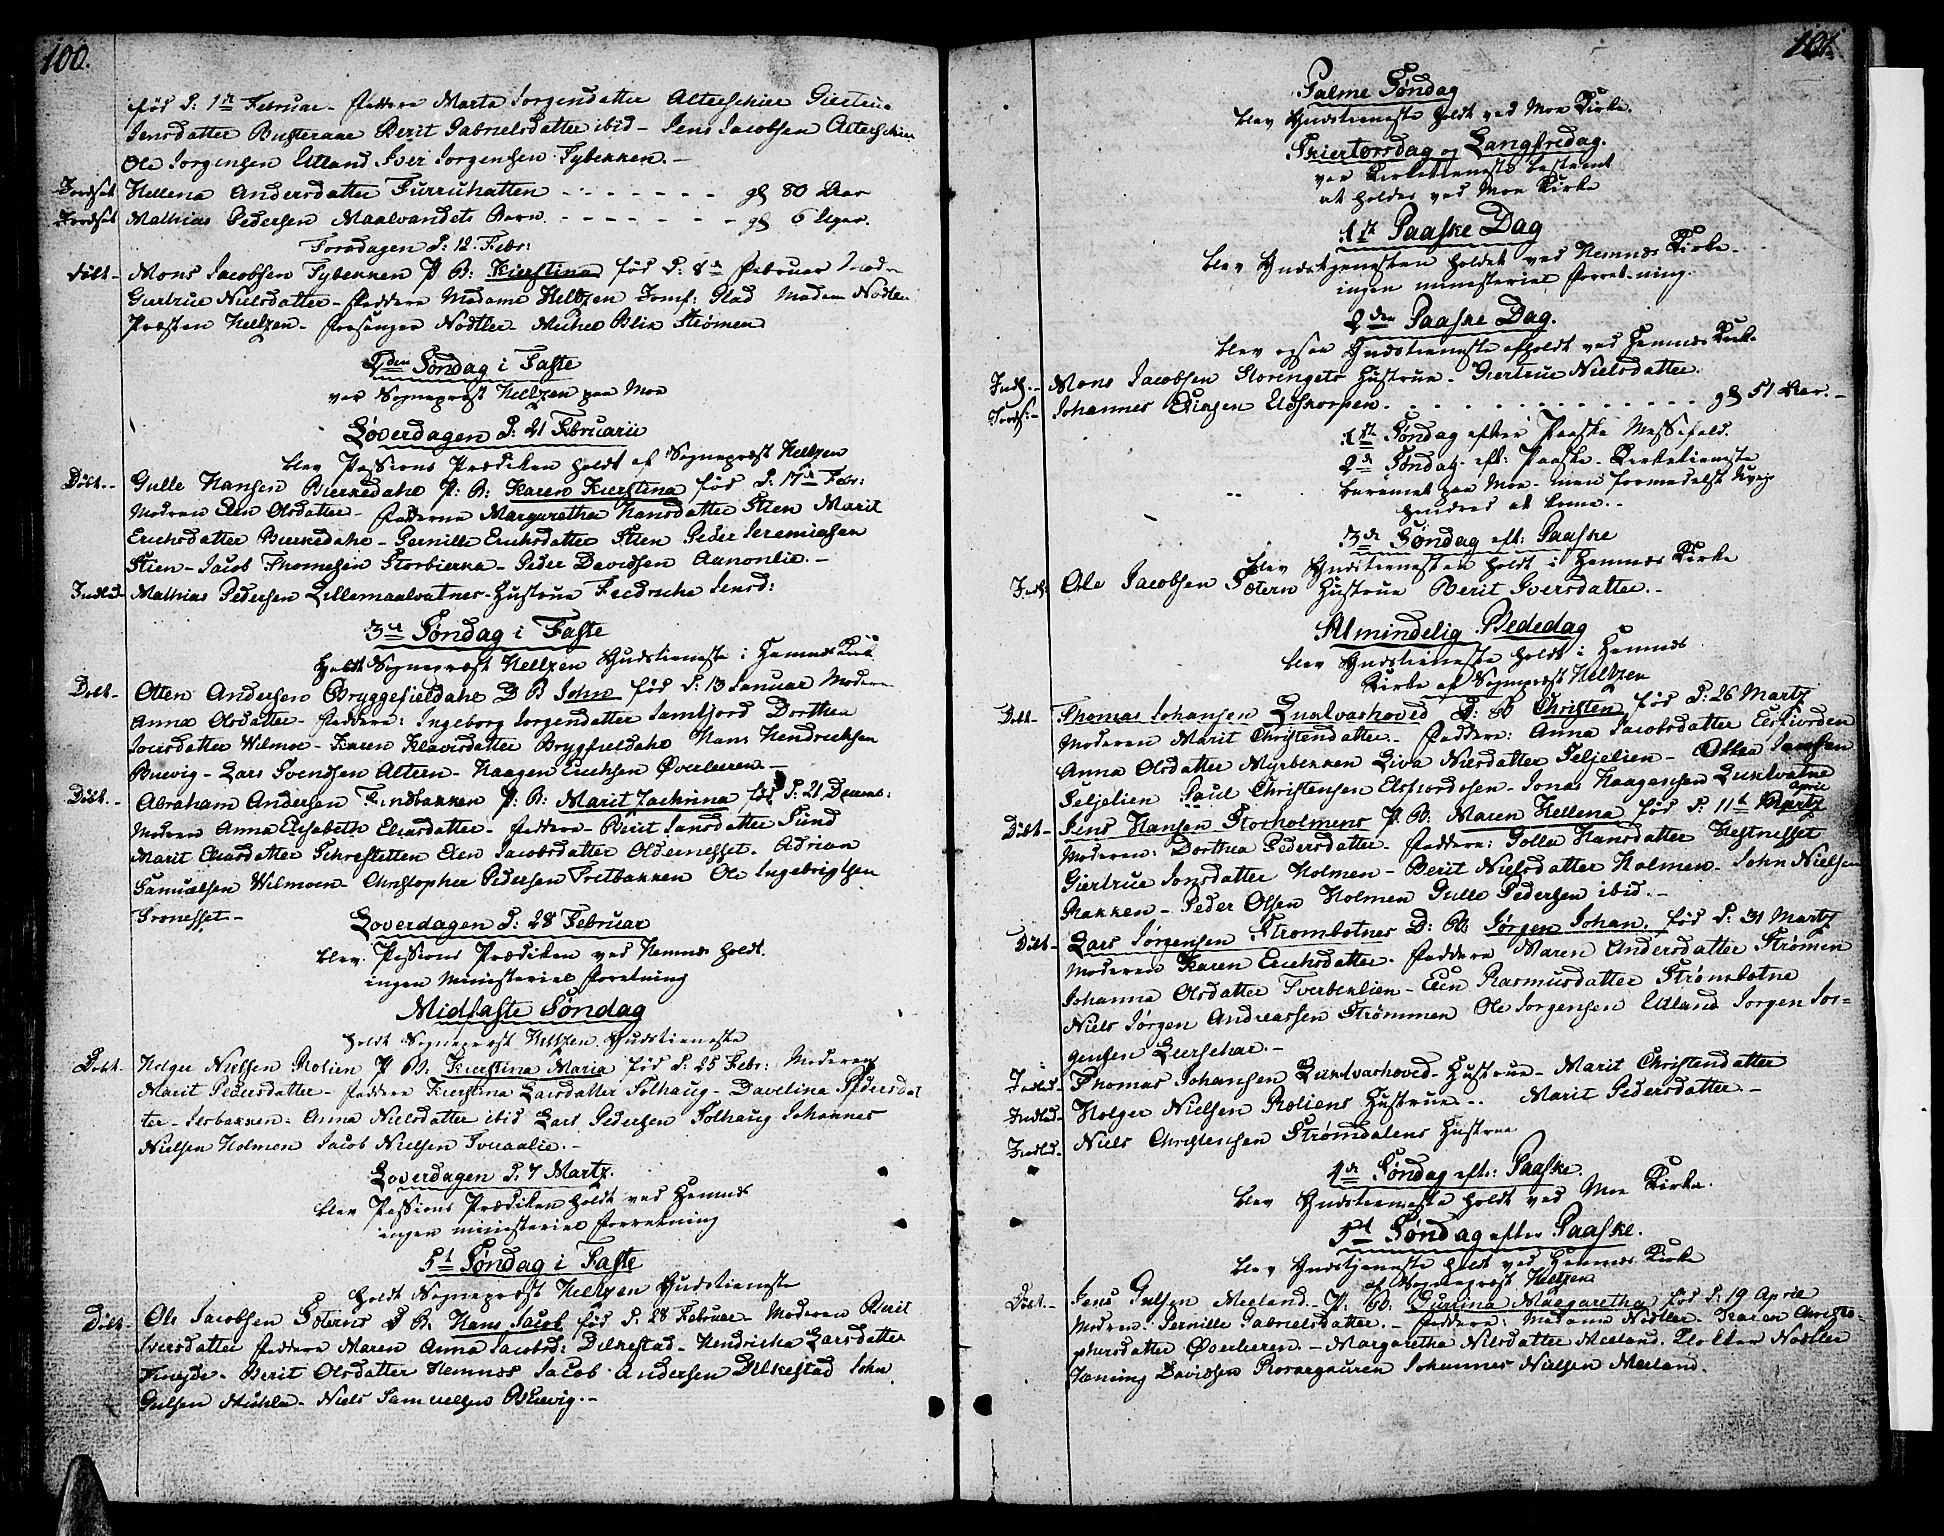 100.
fød d: 1te Februar - Faddere Marta Jorgendatter Alterschier Giertrue
Jensdatter Busteraae Berit Gabrielsdatter ibid - Jens Jacobsen Alterschier
Ole Jorgensen Utland Iver Jorgensen Fybekken. -
Jordfæst Hellena Andersdatter Furruhatten - - - - - - - gl 80 Aar
Jordfæst Mathias Pedersen Maalvandets Barn. - - - - - - - gl 6 Uger.
Torsdagen d: 12. Febr:
Døbt - Mons Jacobsen Fybekken P B: Kierstina fød d: 8de Februar Modr
Giertrue Nielsdatter - Faddere Madame Heltzen Jomf: Glad Madam Nodtler
Præsten Heltzen - Forsanger Nodtler - Michel Blix Strømen
2den Søndag i Faste
var Sognepræst Heltzen paa Moe
Løverdagen d: 21 Februarii
blev Passions Prædiken holdt af Sognepræst Heltzen
Døbt. - Gulle Hansen Bierkedahl P: B: Karen Kierstina fød d: 17de Febr:
Modren Elen Olsdatter - Fadderne Margaretha Hansdatter Stien Marit
Erichsdatter Bierkedahl - Pernille Erichsdatter Stien Peder Jeremiasen
Stien - Jacob Thomesen Storbierka - Peder Davidsen Aanonlie. -
Indled - Mathias Pedersen Lillemaalvatnes - Hustrue Fredriche Jensd:
3de Søndag i Faste
Holdt Sognepræst Heltzen Gudstieneste i Hemnes Kirk
Døbt - Otten Andersen Bryggefieldahl D B John fød d: 13 Januar Moderen
Anna Olsdatter - Faddere: Ingeborg Jorgendatter Jamtjord Dorthea
Joensdatter Wilmoe - Karen Klavisdatter Brygfieldahl Hans Hendrichsen
Buevig - Lars Svendsen Altern - Haagen Erichsen Øverleeren. -
Døbt. - Abraham Andersen Findbakken P: B: Marit Zachrina fød d: 21 Decemb:
Modren Anna Elisabeth Eliasdatter - Faddere - Berit Jansdatter Sund
Marit Eliasdatter Schrestetten Elen Jacobsdatter Oldernesset. Adrian
Samuelsen Wilmoen - Christopher Pedersen Bretbakken Ole Ingebrigtsen
Fronesset. -
Løverdagen d: 28 Februar
blev Passions Prædiken ved Hemnes holdt.
ingen Ministeriel Foretning
Midfaste Søndag
holdt Sognepræst Heltzen Gudstieneste
Døbt. Holger Nielsen Rølien P B: Kierstina Maria fød d: 25 Febr: Moderen
Marit Pedersdatter - Faddere Kierstina Larsdatter Solhaug - Davelina Pedersdat
ter - Isebakken: Anna Nielsdatter ibid Lars Pedersen Solhaug Johannes
Nielsen Holmen Jacob Nielsen Sveraalie. -
Løverdagen d: 7 Martz.
blev Passions Prædiken holdt ved Hemnes
ingen ministeriel Forretning
5te Søndag i Faste
Holdt Sognepræst Heltzen Gudstieneste
Døbt - Ole Jacobsen Sæterns D B: Hans Jacob fød d: 28 Februar - Moderen Berit
Iversdatter Faddere Maren Anna Jacobsd: Dilkestad - Hendricha Larsdatter
Finejde - Berit Olsdatter Hemnæs Jacob Andersen Dilkestad John
Gulsen Michla - Niels Samuelsen Buevig. -
101.
Palme Søndag
blev Gudstieneste holdt ved Moe Kirke.
Skiertorsdag og Langfredag.
var Kirketieneste bestæmt
at holdes ved Moe Kirke
1te Paaske Dag
blev Gudstjenesten holdet ved Hemnæs Kirke -
ingen ministeriel Forretning.
2den Paaske Dag.
blev ogsaa Gudstieneste afholdt ved Hemnæs Kirk.
Indl. - Mons Jacobsen Storingets Hustrue - Giertrue Nielsdatter.
Jordf: - Johannes Elingen Elsskorpen. - - - - - - - gl 51 Aar. -
1te Søndag efter Paaske Messefald.
2de Søndag eft: Paaske - Kirketieneste
berammet paa Moe - men formedelst Uvejr
hindret at komme. -
3de Søndag eft: Paaske
blev Gudstienesten holdt i Hemnæs Kirke
Indl: Ole Jacobsen Sætern Hustrue Berit Iversdatter. -
Almindelig Bededag
blev Gudstieneste holdt i Hemnæs
Kirke af Sognepræst Heltzen
Døbt - Thomas Johansen Luktvashoved D: B Christen fød d: 26 Martz
Moderen Marit Christendatter. - Faddere: Anna Jacobsdatter Elsfiorden
Anna Olsdatter Myrbekken Liva Nielsdatter Seljelien - Ottea Jamtsen
Seljelien Paul Christensen Elsfiordosen - Jonas Haagensen Luktvatne
Døbt - Jens Hansen Storholmens P B: Maren Hellena fød d: 11te April
Moderen: Dorthea Pedersdatter - Faddere: Golla Hansdatter Hestnesset
Giertrue Jonsdatter Holmen - Berit Nielsdatter Holmen. John Nielsen
Bakken - Peder Olsen Holmen Gulle Pedersen ibid. -
Døbt - Lars Jørgensen Strømbotnes D: B: Jørgen Johan. fød d: 31 Martz
Moderen Karen Erichsdatter. Faddere Maren Andersdatter Strømen
Johanna Olsdatter Sverbenlien - Elen Rasmusdatter Strømbotne
Niels Jørgen Andreassen Strømmen Ole Jorgensen Utland Jorgen Jor=
gensen Leerschar. -
Indled. Thomas Johansen Luktvashoved - Hustrue - Marit Christendatter
Indled. Holger Nielsen Røliens Hustrue - - Marit Pedersdatter. -
Indled. Niels Christensen Strømdalens Hustrue
4de Søndag eft: Paaske.
blev Gudstieneste holdt ved Moe Kirke.
5te Søndag efter Paaske.
blev Gudstjeneste holdt ved Hemnæs Kirke
af Sognepræst Heltzen
Døbt. - Jens Gulsen Meeland. - P: B: Gurina Margaretha fød d: 19 April
Modren - Pernille Gabrielsdatter. - Faddere: Madame Nodtler - Karen Christo
phersdatter Øverleeren. - Margaretha Nilsdatter Meeland. Klokker Nodtler
Henning Davidsen Rosaegauren Johannes Nielsen Meeland.